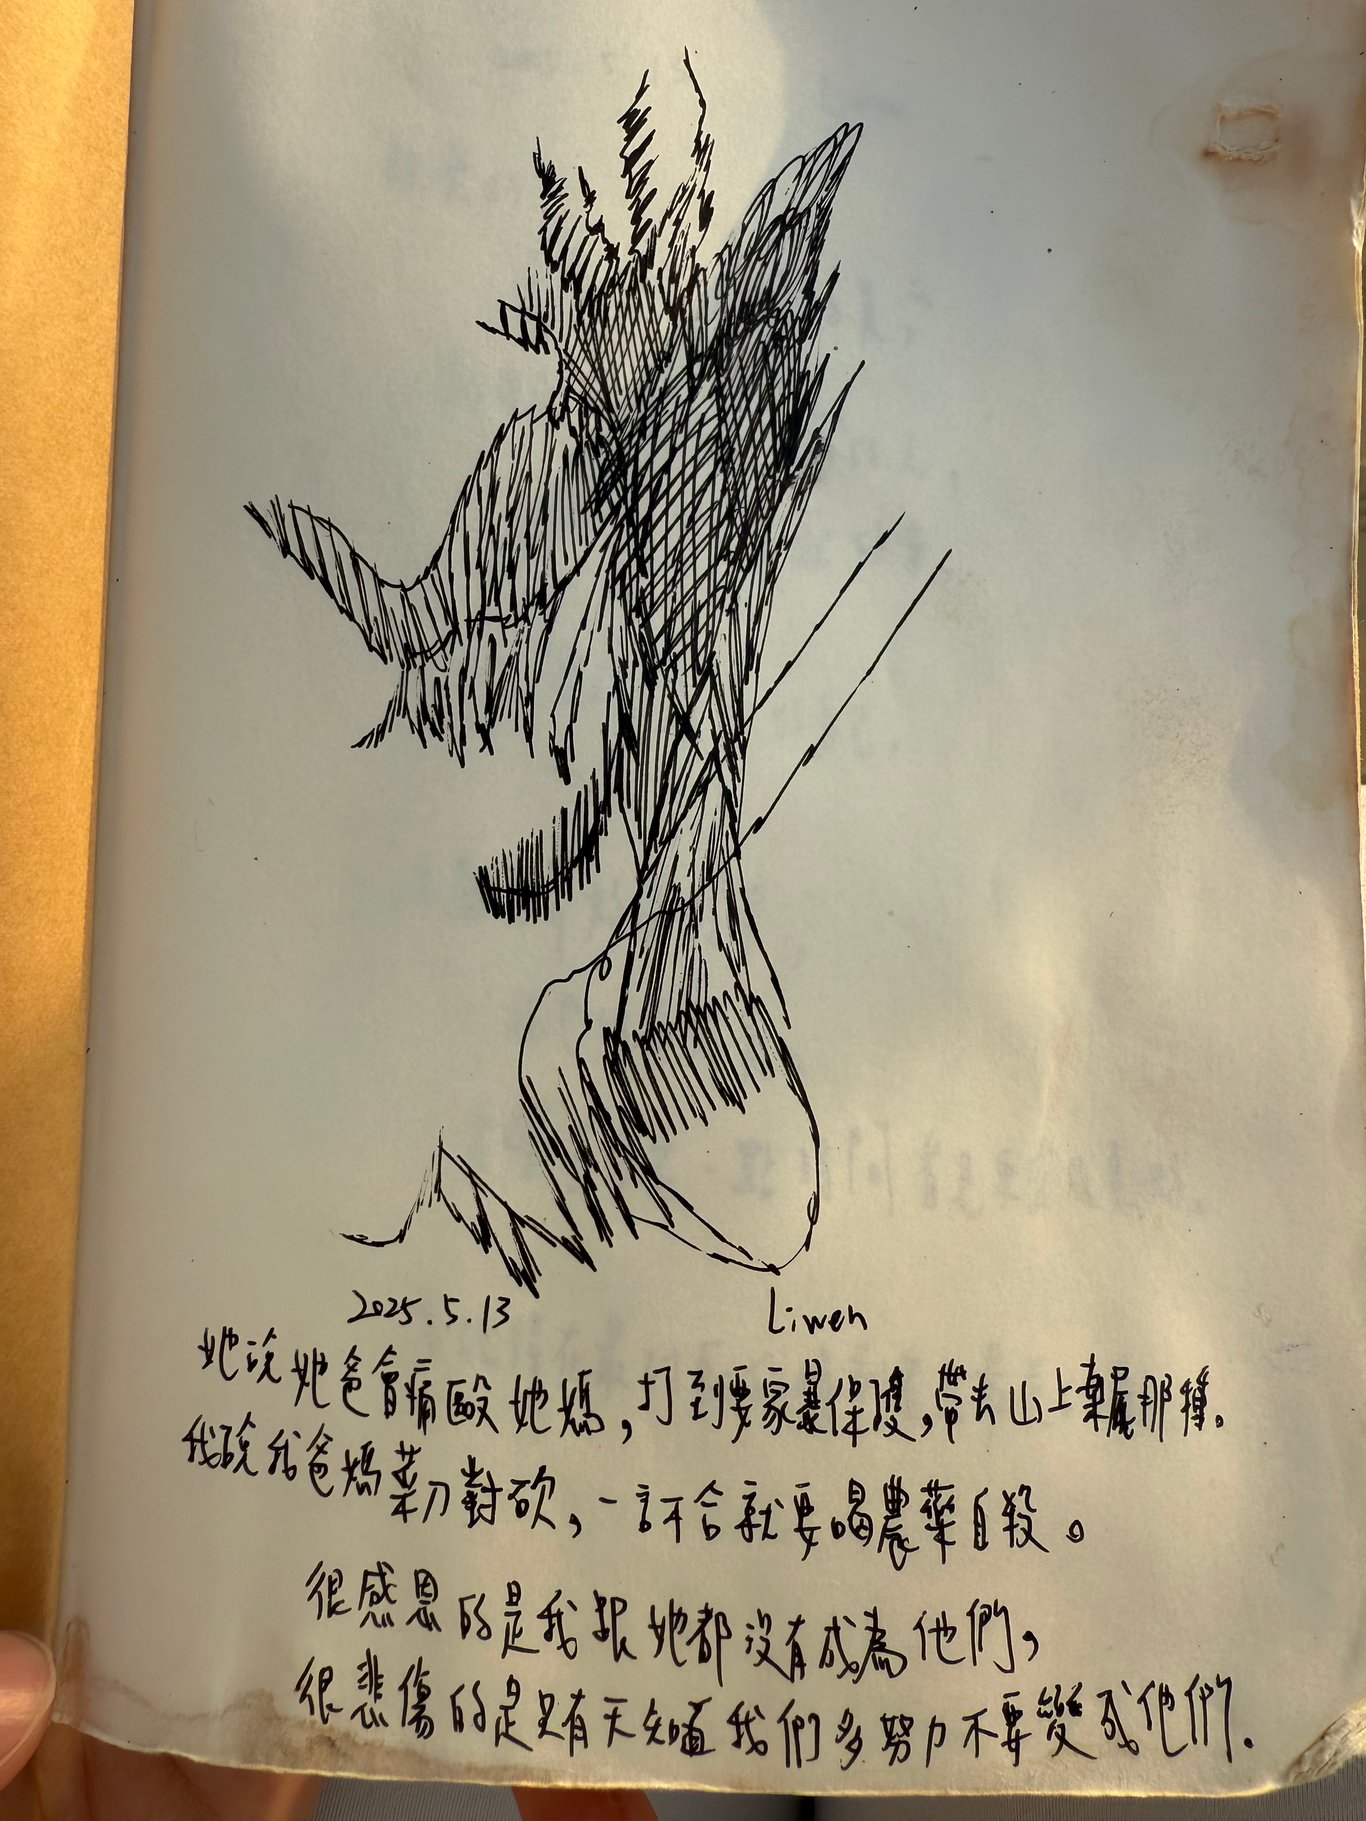 2025.5.13 Liwen
她說她爸會痛毆她媽，打到要家暴保護，帶去山上棄屍那種。
我說我爸媽菜刀對砍，一言不合就要喝農藥自殺。
很感恩的是我跟她都沒有成為他們，
很悲傷的是只有天知道我們多努力不要變成他們.